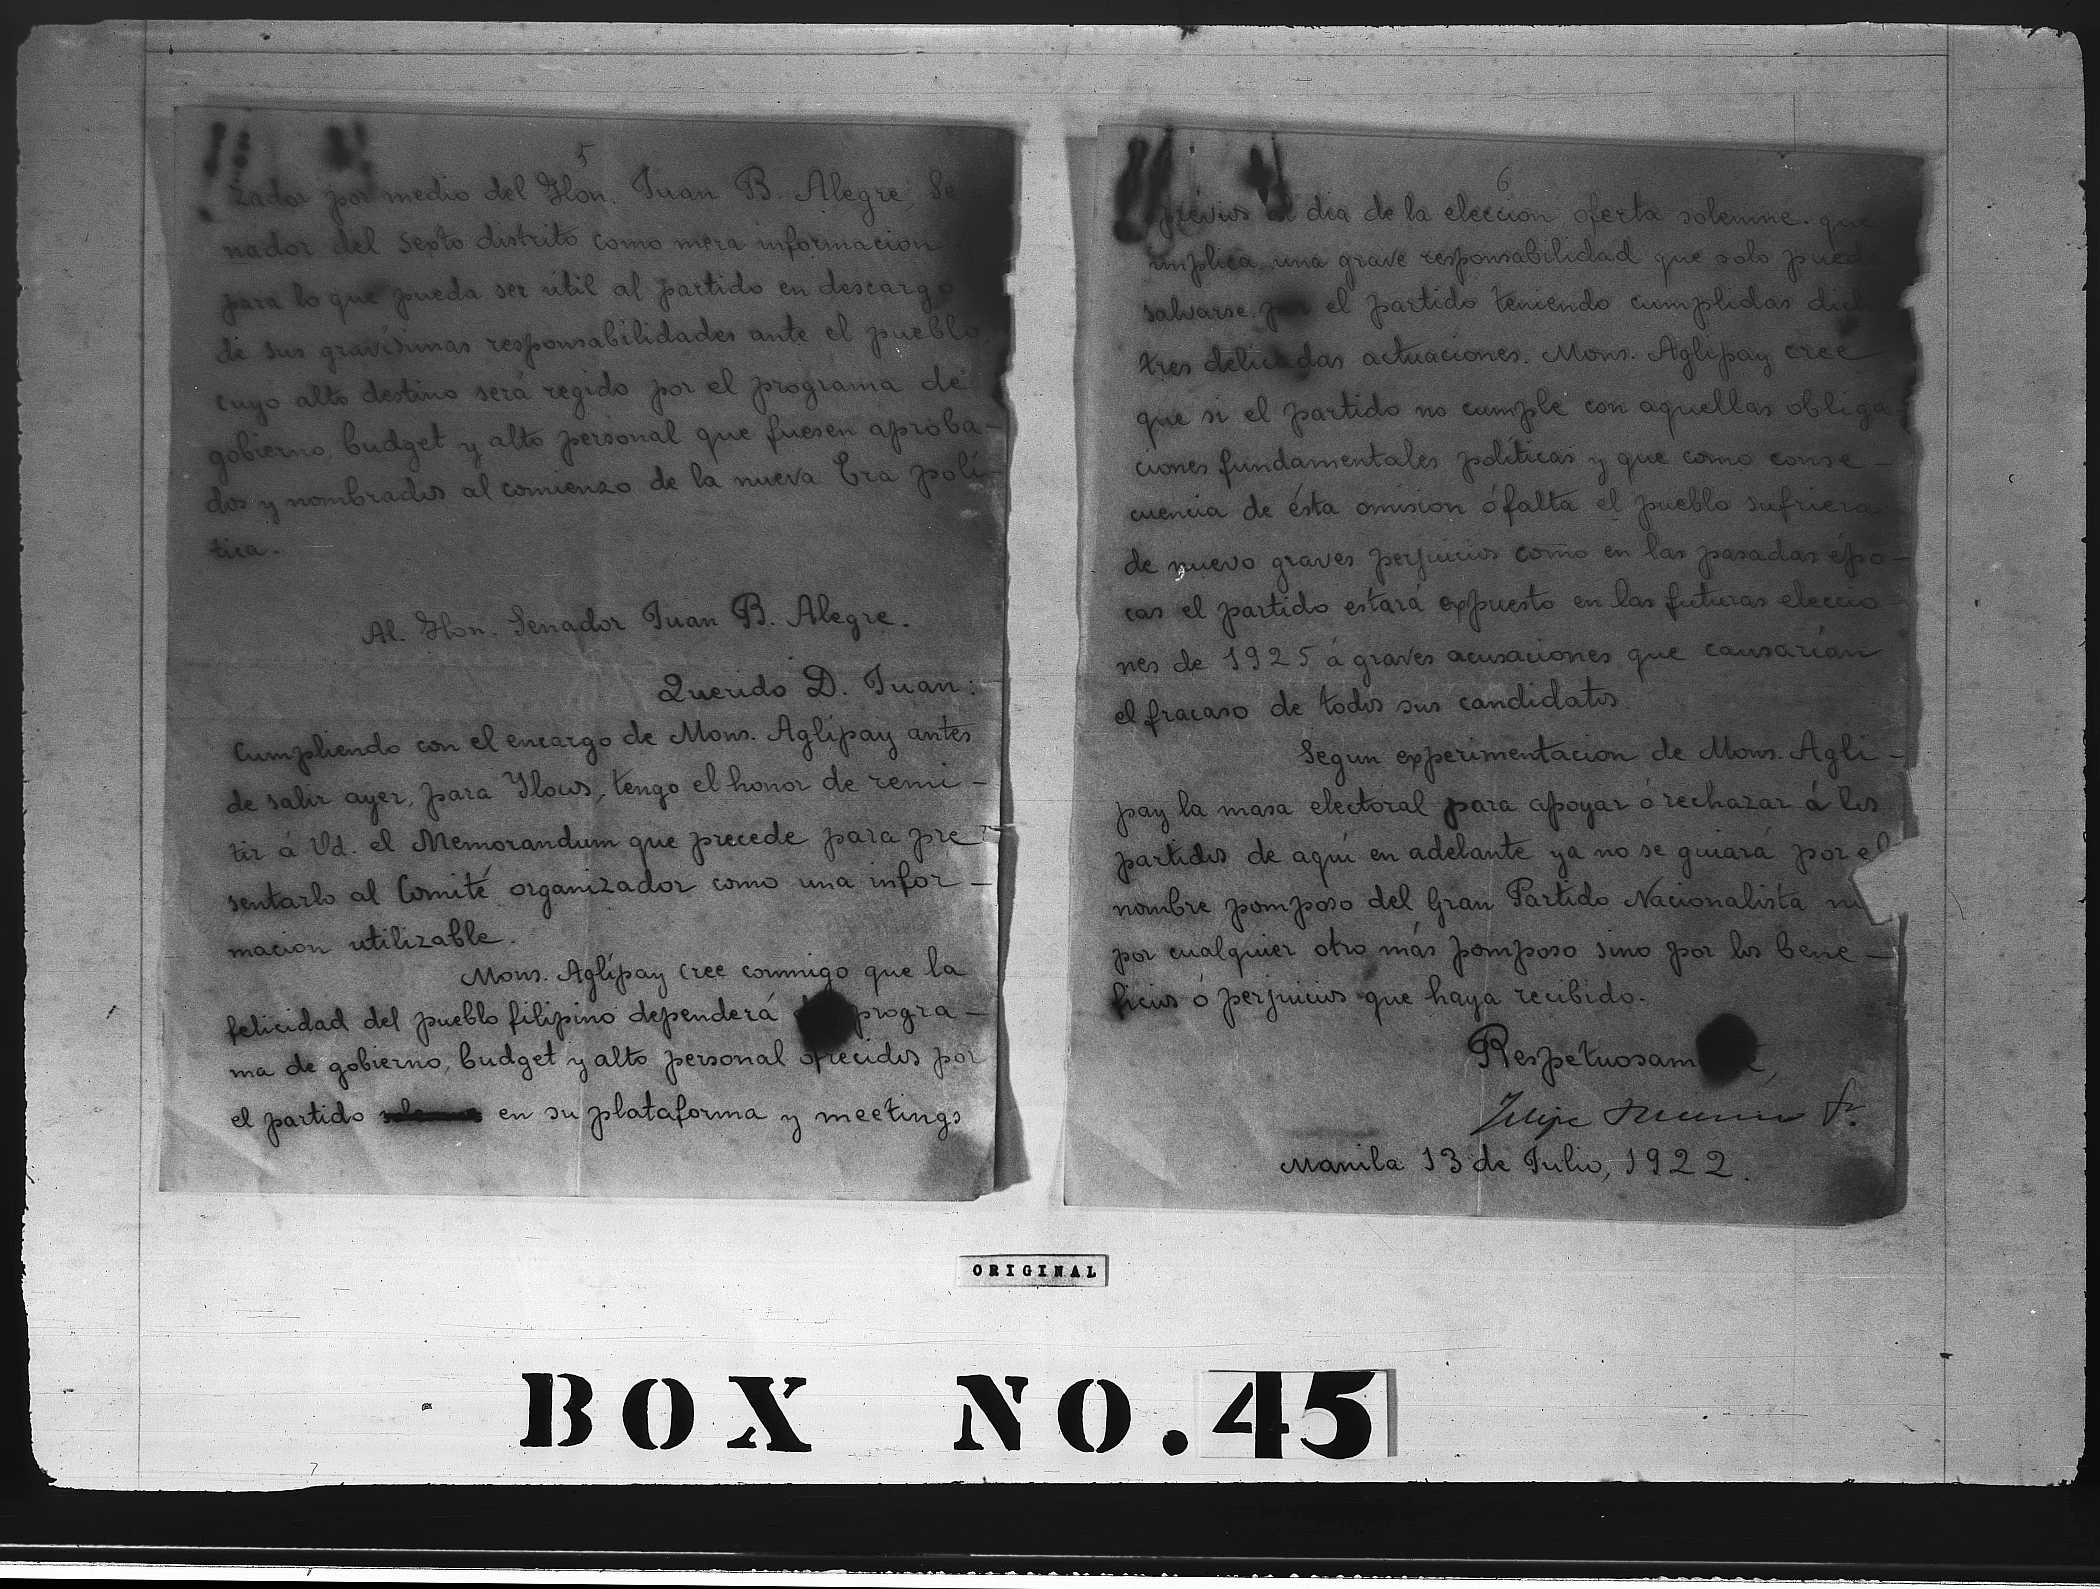 5
zador por medio del Hon. Juan B. Alegre, Se
nador del sexto distrito como mera informacion
para lo que pueda ser útil al partido en descargo
de sus gravísimas responsabilidades ante el pueblo
cuyo alto destino será regido por el programa de
gobierno, budget y alto personal que fuesen aproba-
dos y nombrados al comienzo de la nueva Era polí-
tica.
Al. Hon. Senador Juan B. Alegre.
Querido D. Juan:
Cumpliendo con el encargo de Mons. Aglípay antes
de salir ayer, para Ilocos, tengo el honor de remi-
tir á Vd. el Memorandum que precede para pre
sentarlo al Comité organizador como una infor-
macion utilizable.
Mons. Aglípay cree conmigo que la
felicidad del pueblo filipino dependerá progra-
ma de gobierno, budget y alto personal ofrecidos por
el partido en su plataforma y meetings
6
previos al dia de la eleccion oferta solemne que
implica una grave responsabilidad que solo pued
salvarse por el partido teniendo cumplidas dich
tres delicadas actuaciones. Mons. Aglípay cree
que si el partido no cumple con aquellas obliga-
ciones fundamentales políticas y que como conse-
cuencia de ésta omision ó falta el pueblo sufriera
de nuevo graves perjuicios como en las pasadas épo-
cas el partido estará expuesto en las futuras eleccio
nes de 1925 á graves acusaciones que causarían
el fracaso de todos sus candidatos
Segun experimentacion de Mons. Agli-
pay la masa electoral para apoyar ó rechazar á los
partidos de aquí en adelante ya no se guiará por el
nombre pomposo del Gran Partido Nacionalista ni
por cualquier otro más pomposo sino por los bene-
ficios ó perjuicios que haya recibido.
Respetuosam
Felipe Jr.
Manila 13 de Julio, 1922.
ORIGINAL
BOX NO. 45